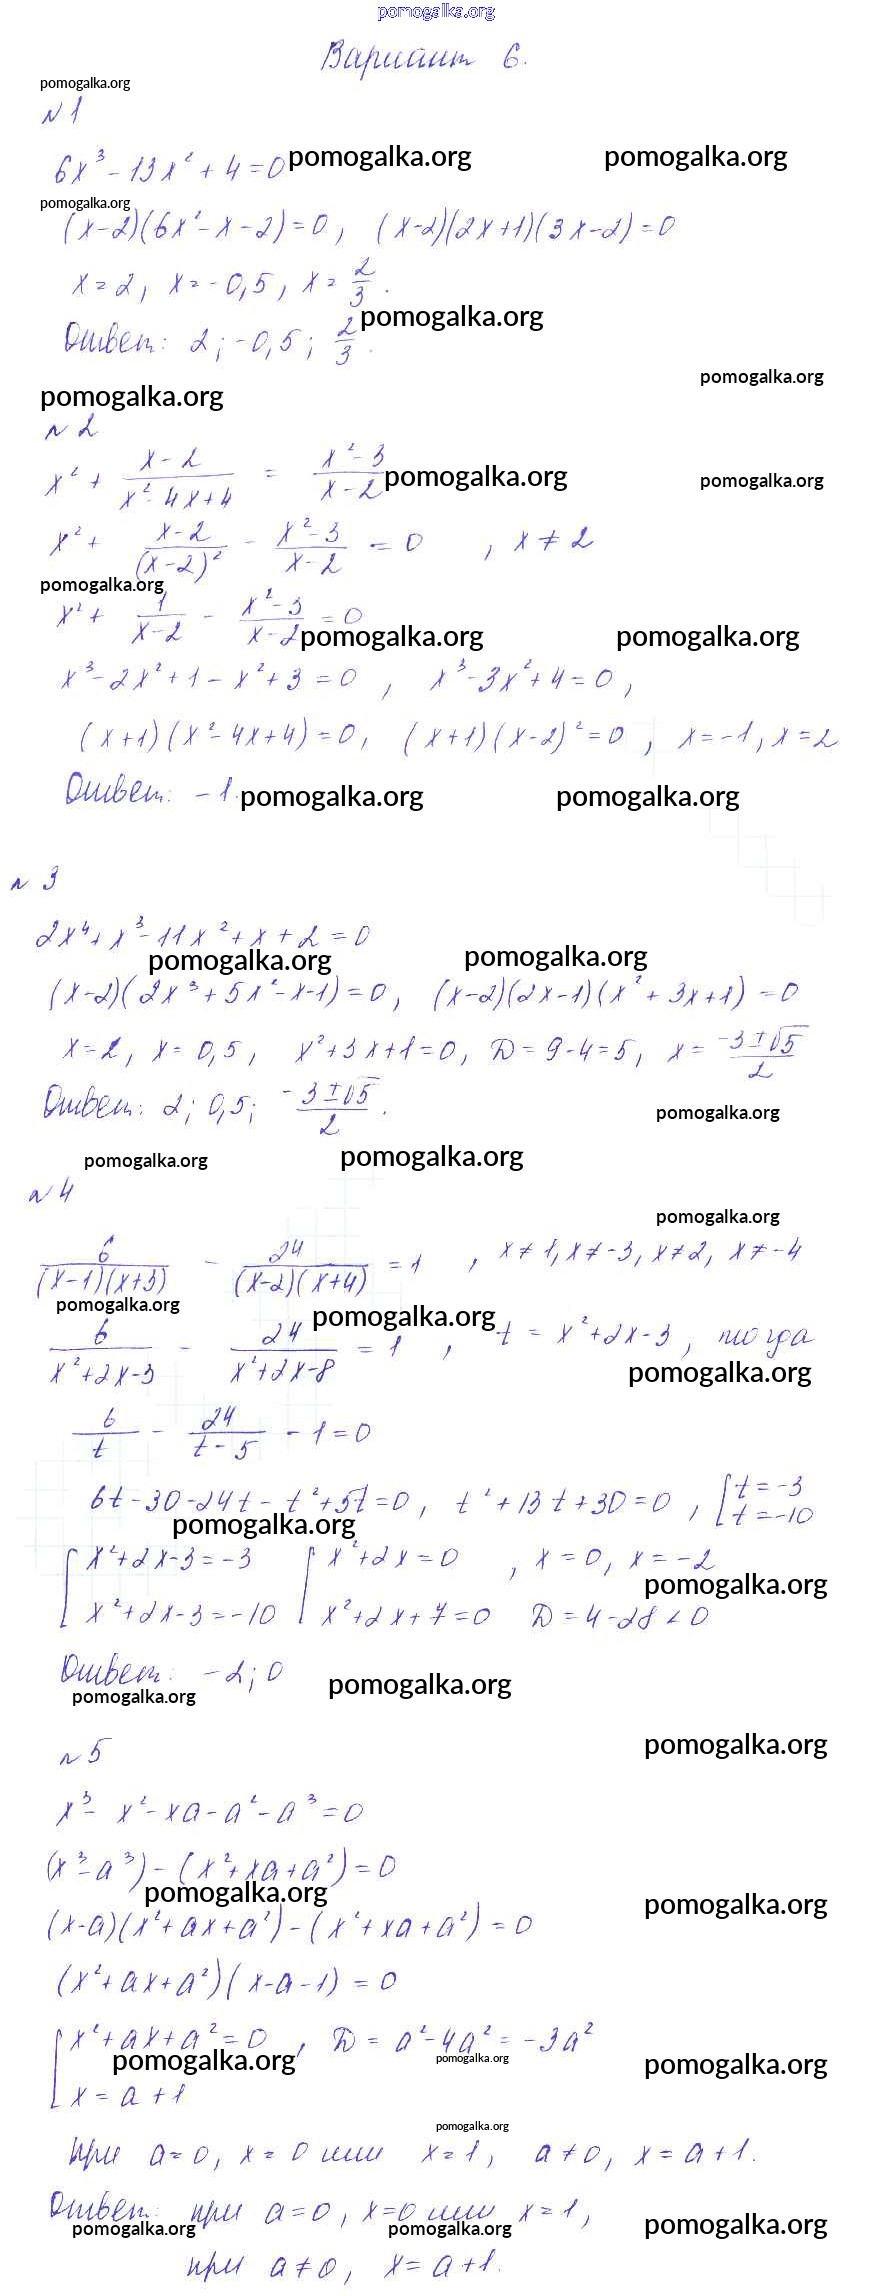 pomogalka.org
Вариант 6.
pomogalka.org
№1
6x³ - 13x² + 4 = 0 pomogalka.org pomogalka.org
pomogalka.org
(x-2)(6x² - x - 2) = 0, (x-2)(2x+1)(3x-2) = 0
x = 2, x = -0,5, x = 2/3.
Ответ: 2; -0,5; 2/3. pomogalka.org
pomogalka.org
pomogalka.org
№2
x² + (x-2)/(x²-4x+4) = (x²-3)/(x-2) pomogalka.org pomogalka.org
x² + (x-2)/(x-2)² - (x²-3)/(x-2) = 0, x ≠ 2
pomogalka.org
x² + 1/(x-2) - (x²-3)/(x-2) = 0 pomogalka.org pomogalka.org
x³ - 2x² + 1 - x² + 3 = 0, x³ - 3x² + 4 = 0,
(x+1)(x² - 4x + 4) = 0, (x+1)(x-2)² = 0, x = -1, x = 2
Ответ: -1. pomogalka.org pomogalka.org
№3
2x⁴ + x³ - 11x² + x + 2 = 0
pomogalka.org pomogalka.org
(x-2)(2x³ + 5x² - x - 1) = 0, (x-2)(2x-1)(x² + 3x + 1) = 0
x = 2, x = 0,5, x² + 3x + 1 = 0, D = 9 - 4 = 5, x = (-3±√5)/2
Ответ: 2; 0,5; (-3±√5)/2.
pomogalka.org
pomogalka.org pomogalka.org
№4
pomogalka.org
6/((x-1)(x+3)) - 24/((x-2)(x+4)) = 1, x ≠ 1, x ≠ -3, x ≠ 2, x ≠ -4
pomogalka.org pomogalka.org
6/(x²+2x-3) - 24/(x²+2x-8) = 1, t = x² + 2x - 3, тогда
pomogalka.org
6/t - 24/(t-5) - 1 = 0
6t - 30 - 24t - t² + 5t = 0, t² + 13t + 30 = 0, [t = -3
t = -10
pomogalka.org
[x² + 2x - 3 = -3 [x² + 2x = 0, x = 0, x = -2
pomogalka.org
x² + 2x - 3 = -10 x² + 2x + 7 = 0 D = 4 - 28 < 0
Ответ: -2; 0 pomogalka.org
pomogalka.org
pomogalka.org
№5
x³ - x² - xa - a² - a³ = 0
(x³ - a³) - (x² + xa + a²) = 0
pomogalka.org pomogalka.org
(x-a)(x² + ax + a²) - (x² + xa + a²) = 0
(x² + ax + a²)(x - a - 1) = 0
[x² + ax + a² = 0, D = a² - 4a² = -3a²
pomogalka.org pomogalka.org pomogalka.org
x = a + 1
pomogalka.org
при a = 0, x = 0 или x = 1, a ≠ 0, x = a + 1.
Ответ: при a = 0, x = 0 или x = 1,
pomogalka.org pomogalka.org pomogalka.org
при a ≠ 0, x = a + 1.